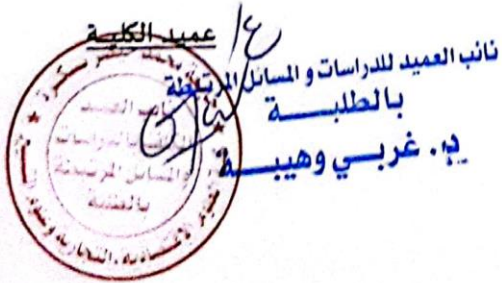 عميد الكلية
ع/
نائب العميد للدراسات و المسائل المرتبطة
بالطلبـــــة
د. غربـــي وهيبـــة
نائب العميد
بالدراسات
والمسائل المرتبطة
بالطلبة